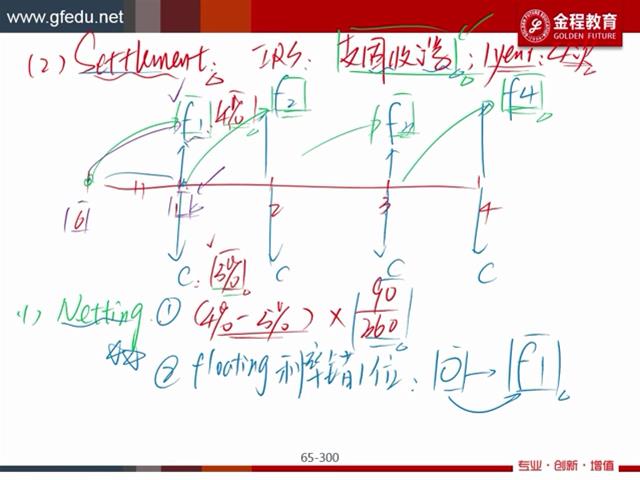 www.gfedu.net
金程教育
GOLDEN FUTURE
(2) Settlement: IRS: 支固收浮; 1year: 4次
f1 4% f2 f4
0 1 2 3 4
C C C C
3%
(1) Netting ① (4%-3%) × 90/360
② floating 利率错1位: 0 → f1
65-300
专业·创新·增值